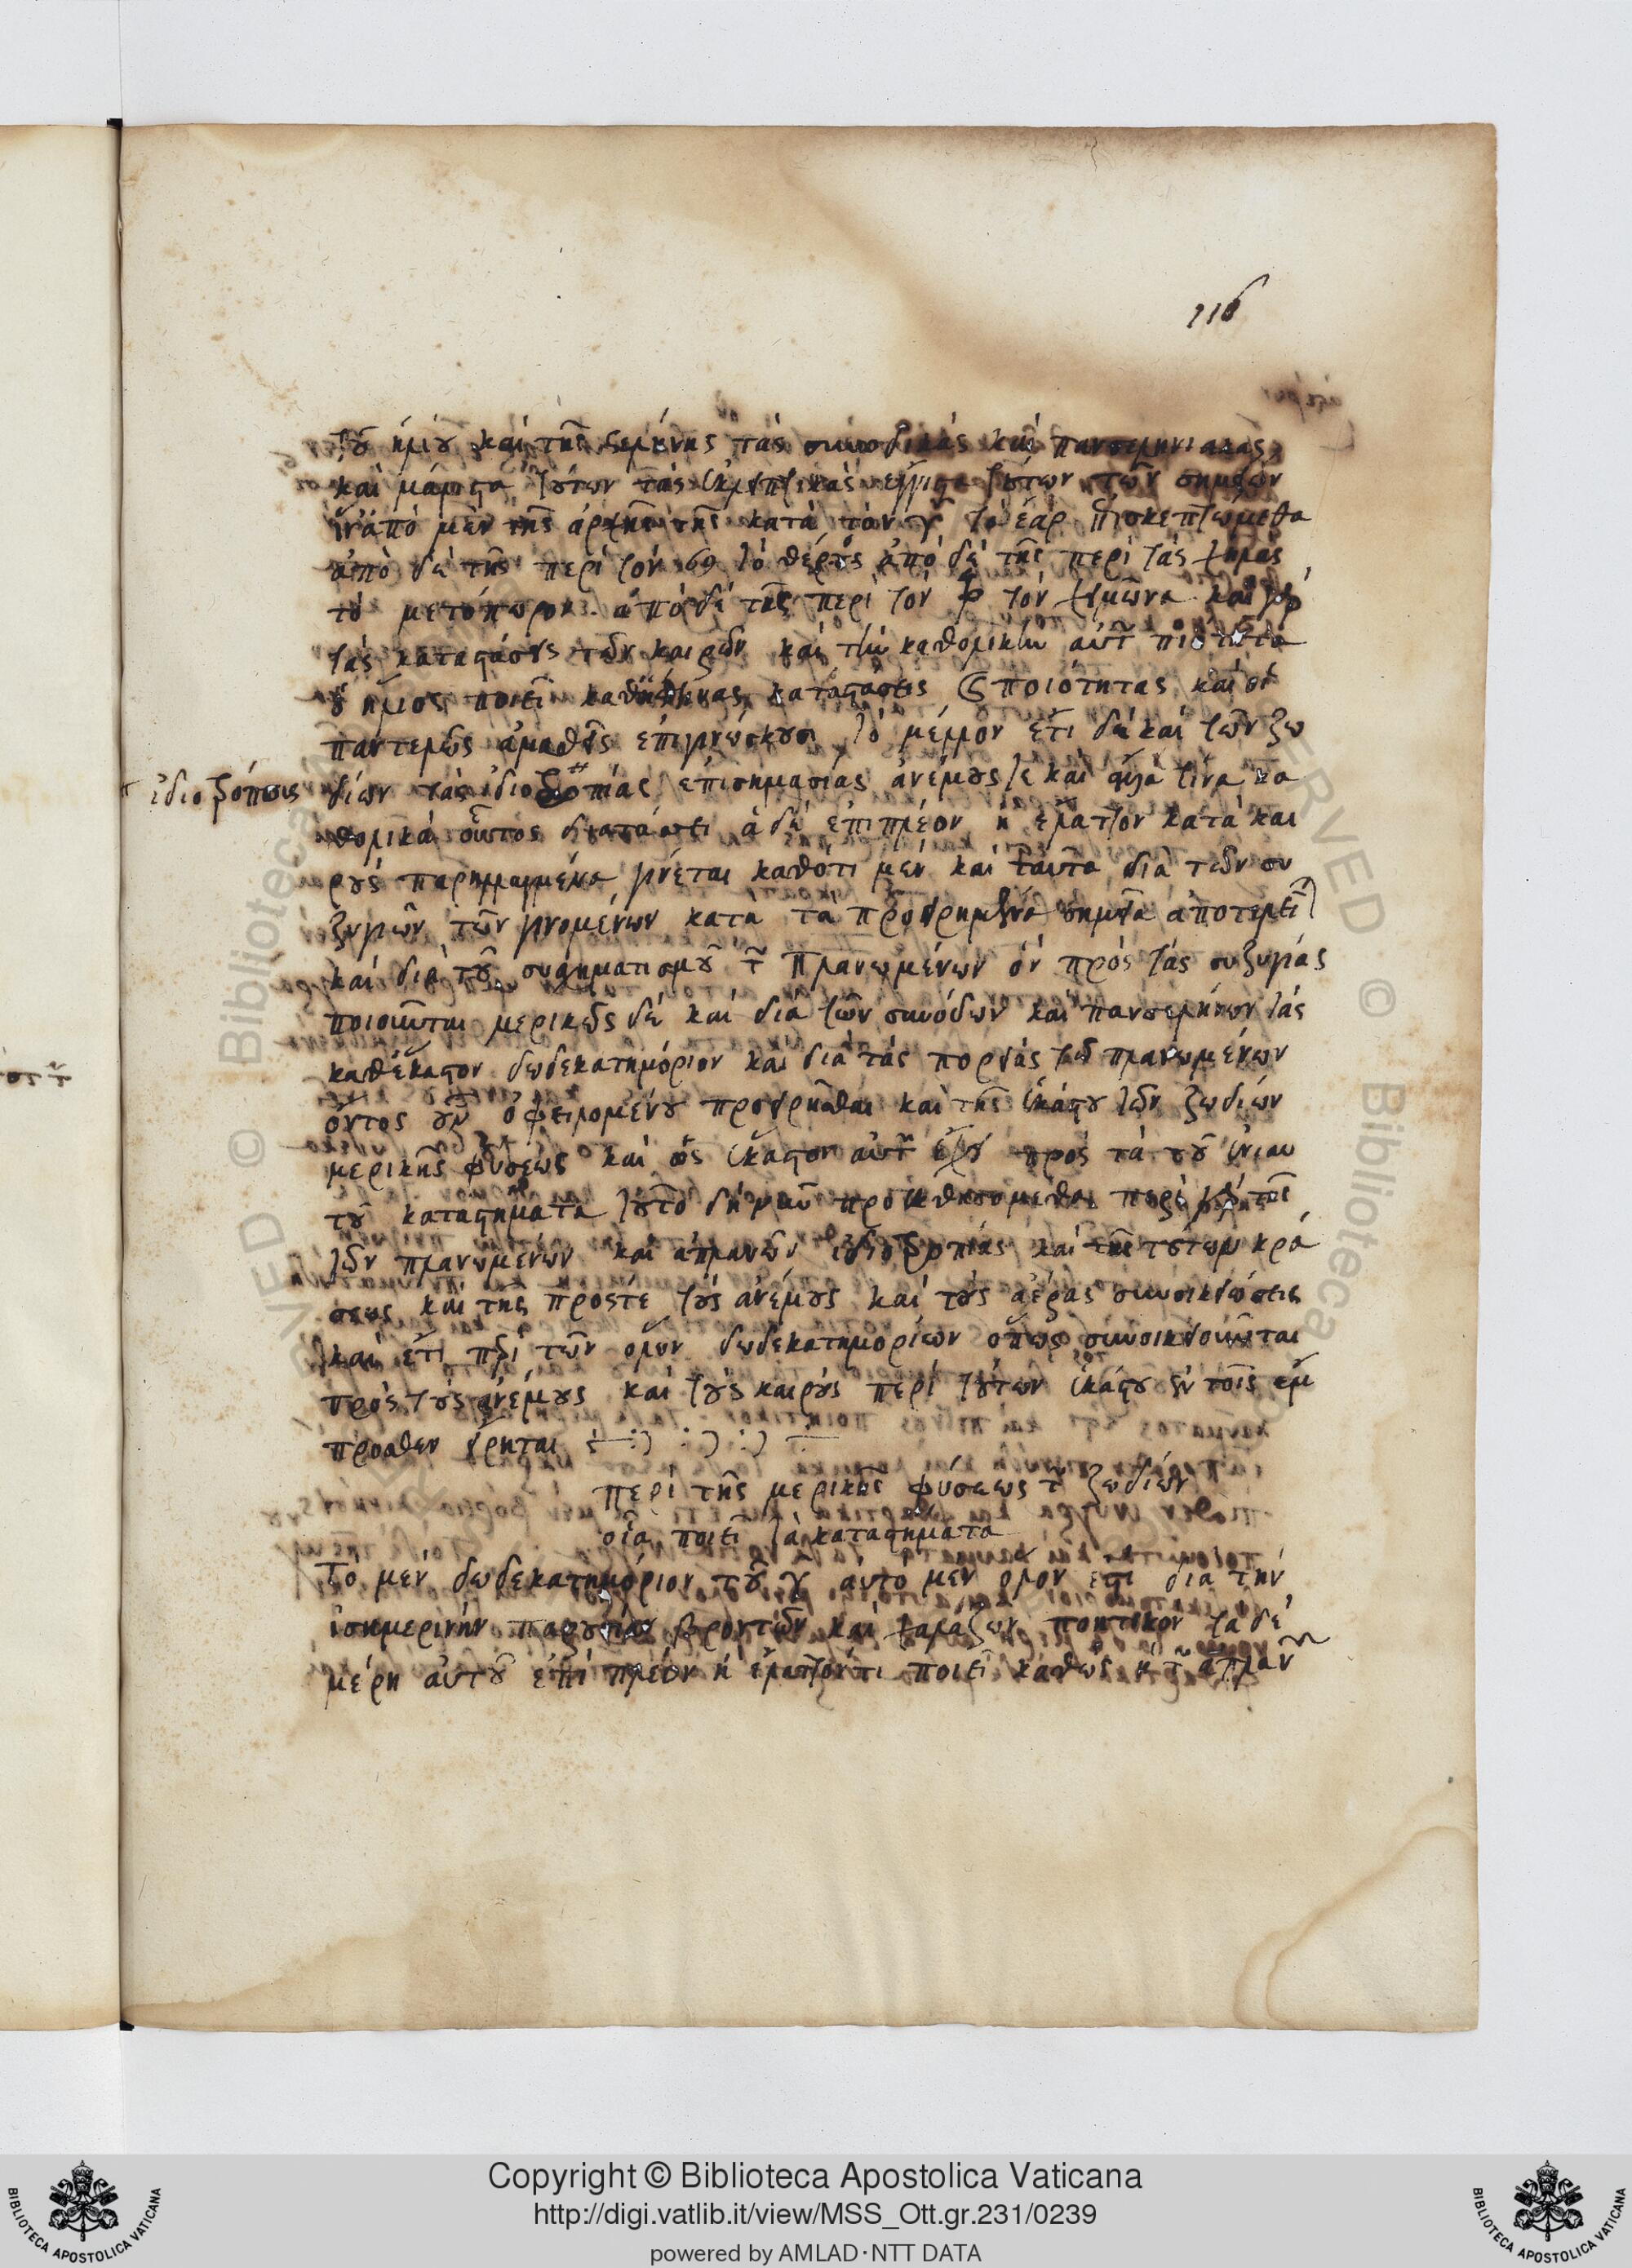 116
τοῦ ἡλίου καὶ τῆς σελήνης τὰς συνοδικὰς καὶ πανσεληνιακὰς
καὶ μάλιστα τούτων τὰς ἐκλειπτικὰς ἔγγιστα τούτων τῶν σημείων
ἵν' ἀπὸ μὲν τῆς ἀρχῆς τῆς κατὰ τὸν ♈ τὸ ἔαρ ἐπισκεπτώμεθα
ἀπὸ δὲ τῆς περὶ τὸν ♋ τὸ θέρος ἀπὸ δὲ τῆς περὶ τὰς χηλὰς
τὸ μετόπωρον. ἀπὸ δὲ τῆς περὶ τὸν τὸν χειμῶνα. καὶ γὰρ
τὰς καταστάσεις τῶν καιρῶν καὶ τὴν καθολικὴν αὐτῶν ποιότητα
ὁ ἥλιος ποιεῖ καταστάσεις ποιότητας καὶ οἱ
παντελῶς ἀμαθεῖς ἐπιγινώσκουσι τὸ μέλλον ἔτι δὲ καὶ τῶν ζω
ἰδιοτρόπους
δίων τὰς ἰδιοτροπίας ἐπισημασίας ἀνέμους τε καὶ ἄλλα τινὰ κα
θολικὰ οὗτος διατάσσει ἃ δὲ ἐπιπλέον ἢ ἔλαττον κατὰ και
ροὺς παρηλλαγμένα γίνεται καθότι μὲν καὶ ταῦτα διὰ τῶν συ
ζυγιῶν τῶν γινομένων κατὰ τὰ προειρημένα σημεῖα ἀποτελεῖ
καὶ διὰ τοῦ συσχηματισμοῦ τῶν πλανωμένων ὃν πρὸς τὰς συζυγίας
ποιοῦνται μερικῶς δὲ καὶ διὰ τῶν συνόδων καὶ πανσελήνων τὰς
καθ' ἕκαστον δωδεκατημόριον καὶ διὰ τὰς πορείας τῶν πλανωμένων
ὄντος οὖν ὀφειλομένου προειρῆσθαι καὶ τῆς ἑκάστου τῶν ζωδίων
μερικῆς φύσεως καὶ ὡς ἕκαστον αὐτῶν ἔχει πρὸς τὰ τοῦ ἐνιαυ
τοῦ καταστήματα τοῦτο δὴ νῦν προσεκθησόμεθα περὶ γὰρ τῆς
τῶν πλανωμένων καὶ ἀπλανῶν ἰδιοτροπίας καὶ τῆς τούτων κρά
σεως καὶ τῆς πρός τε τοὺς ἀνέμους καὶ τοὺς ἀέρας συνοικειώσεις
καὶ ἔτι περὶ τῶν ὅλων δωδεκατημορίων ὅπως συνοικειοῦνται
πρὸς τοὺς ἀνέμους καὶ τοὺς καιροὺς περὶ τούτων ἑκάστου ἐν τοῖς ἔμ
προσθεν εἴρηται
περὶ τῆς μερικῆς φύσεως τῶν ζωδίων
οἷα ποιεῖ τὰ καταστήματα
Τὸ μὲν δωδεκατημόριον τοῦ ♈ αὐτὸ μὲν ὅλον ἐστὶ διὰ τὴν
ἰσημερινὴν παρουσίαν βροντῶν καὶ χαλαζῶν ποιητικὸν τὰ δὲ
μέρη αὐτοῦ ἐπὶ πλέον ἢ ἔλαττόν τι ποιεῖ καθὼς καὶ τῶν ἀπλανῶν
Copyright © Biblioteca Apostolica Vaticana
http://digi.vatlib.it/view/MSS_Ott.gr.231/0239
powered by AMLAD·NTT DATA
BIBLIOTECA APOSTOLICA VATICANA
BIBLIOTECA APOSTOLICA VATICANA